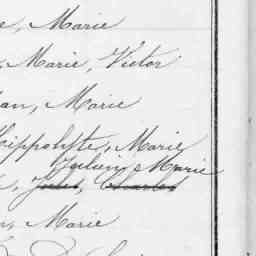 e, Marie
, Marie, Victor
an, Marie
Hippolyte, Marie
Marie
, Jules, Charles
n, Marie